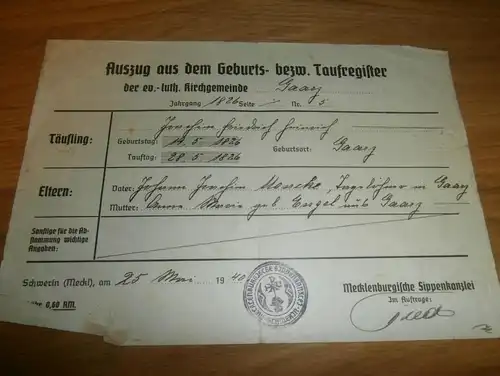 Auszug aus dem Geburts- bezw. Taufregister
der ev.-luth. Kirchgemeinde Gaarz
Jahrgang 1826 Seite / Nr. 5
Täufling:
Joachim Friedrich Heinrich
Geburtstag: 14.5.1826 Geburtsort: Gaarz
Tauftag: 28.5.1826
Eltern:
Vater: Johann Joachim Mencke, Tagelöhner in Gaarz
Mutter: Anna Maria geb. Engel aus Gaarz
Sonstige für die Ab-
stammung wichtige
Angaben:
Schwerin (Meckl), am 25 Mai 1940
0,60 RM.
Mecklenburgische Sippenkanzlei
Im Auftrage: